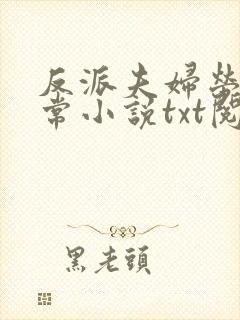 反派夫婦營
常小說txt閱
黑老頭